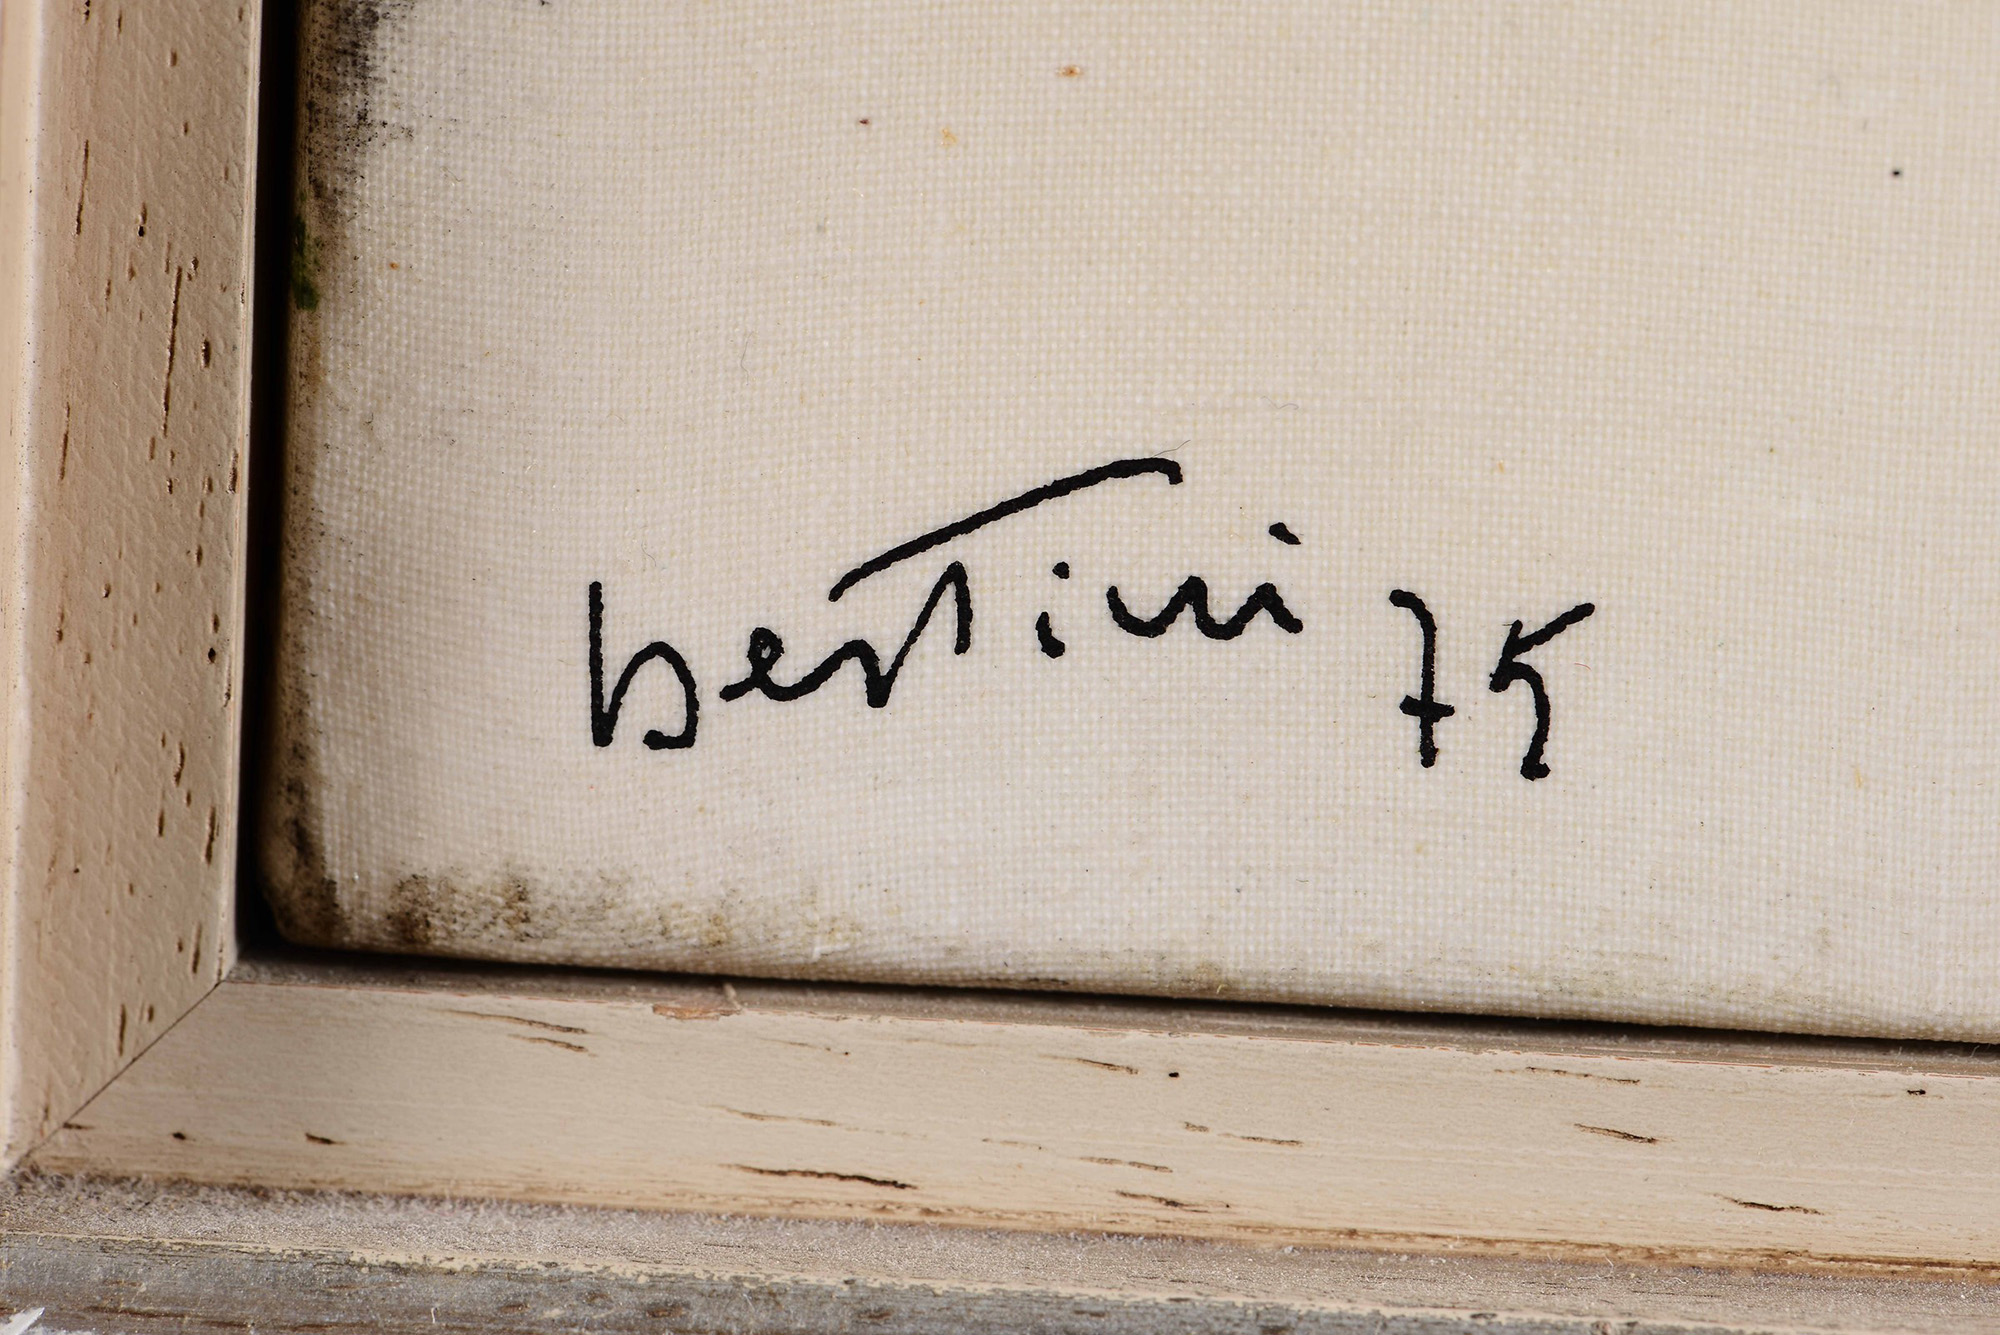 bertini 75